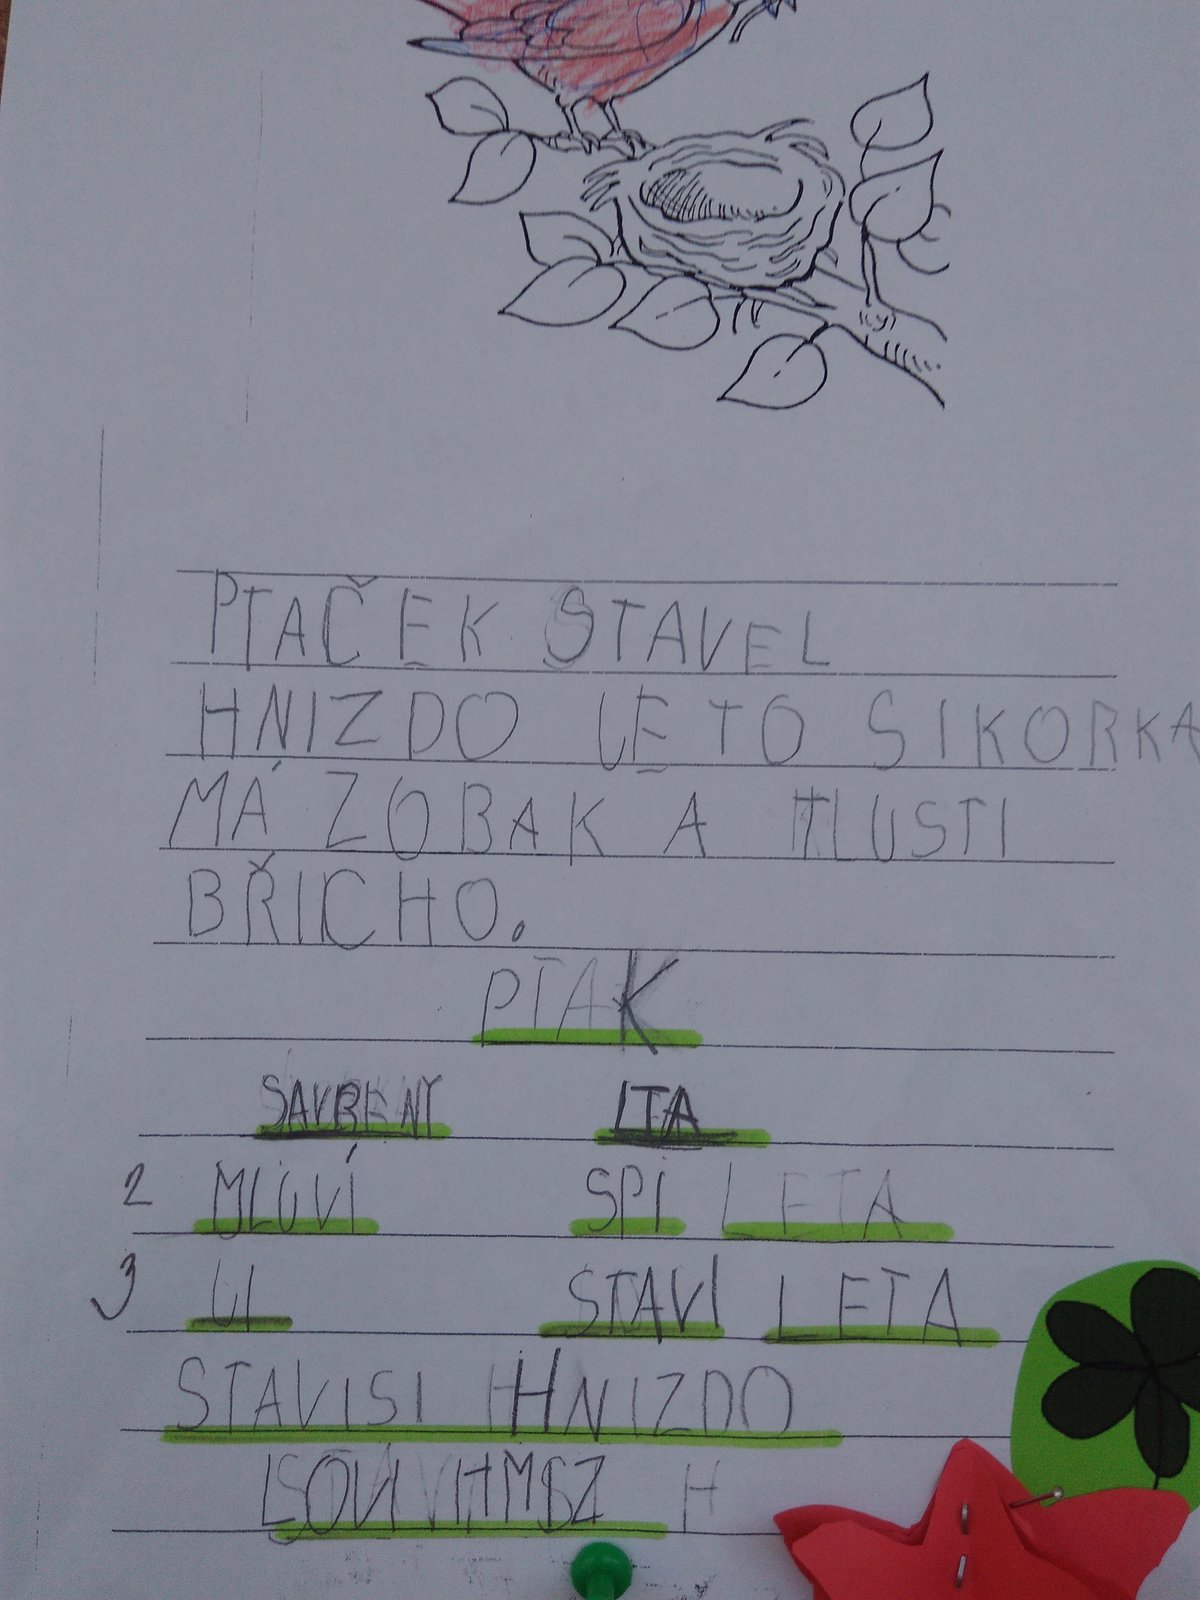 PTAČEK STAVEL
HNIZDO JE TO SIKORKA
MÁ ZOBAK A TLUSTI
BŘICHO.
PTAK
SAVRENY LTA
2 MLUVÍ SPI LETA
3 UI STAVI LETA
STAVISI HNIZDO
LOVI HMSZ H